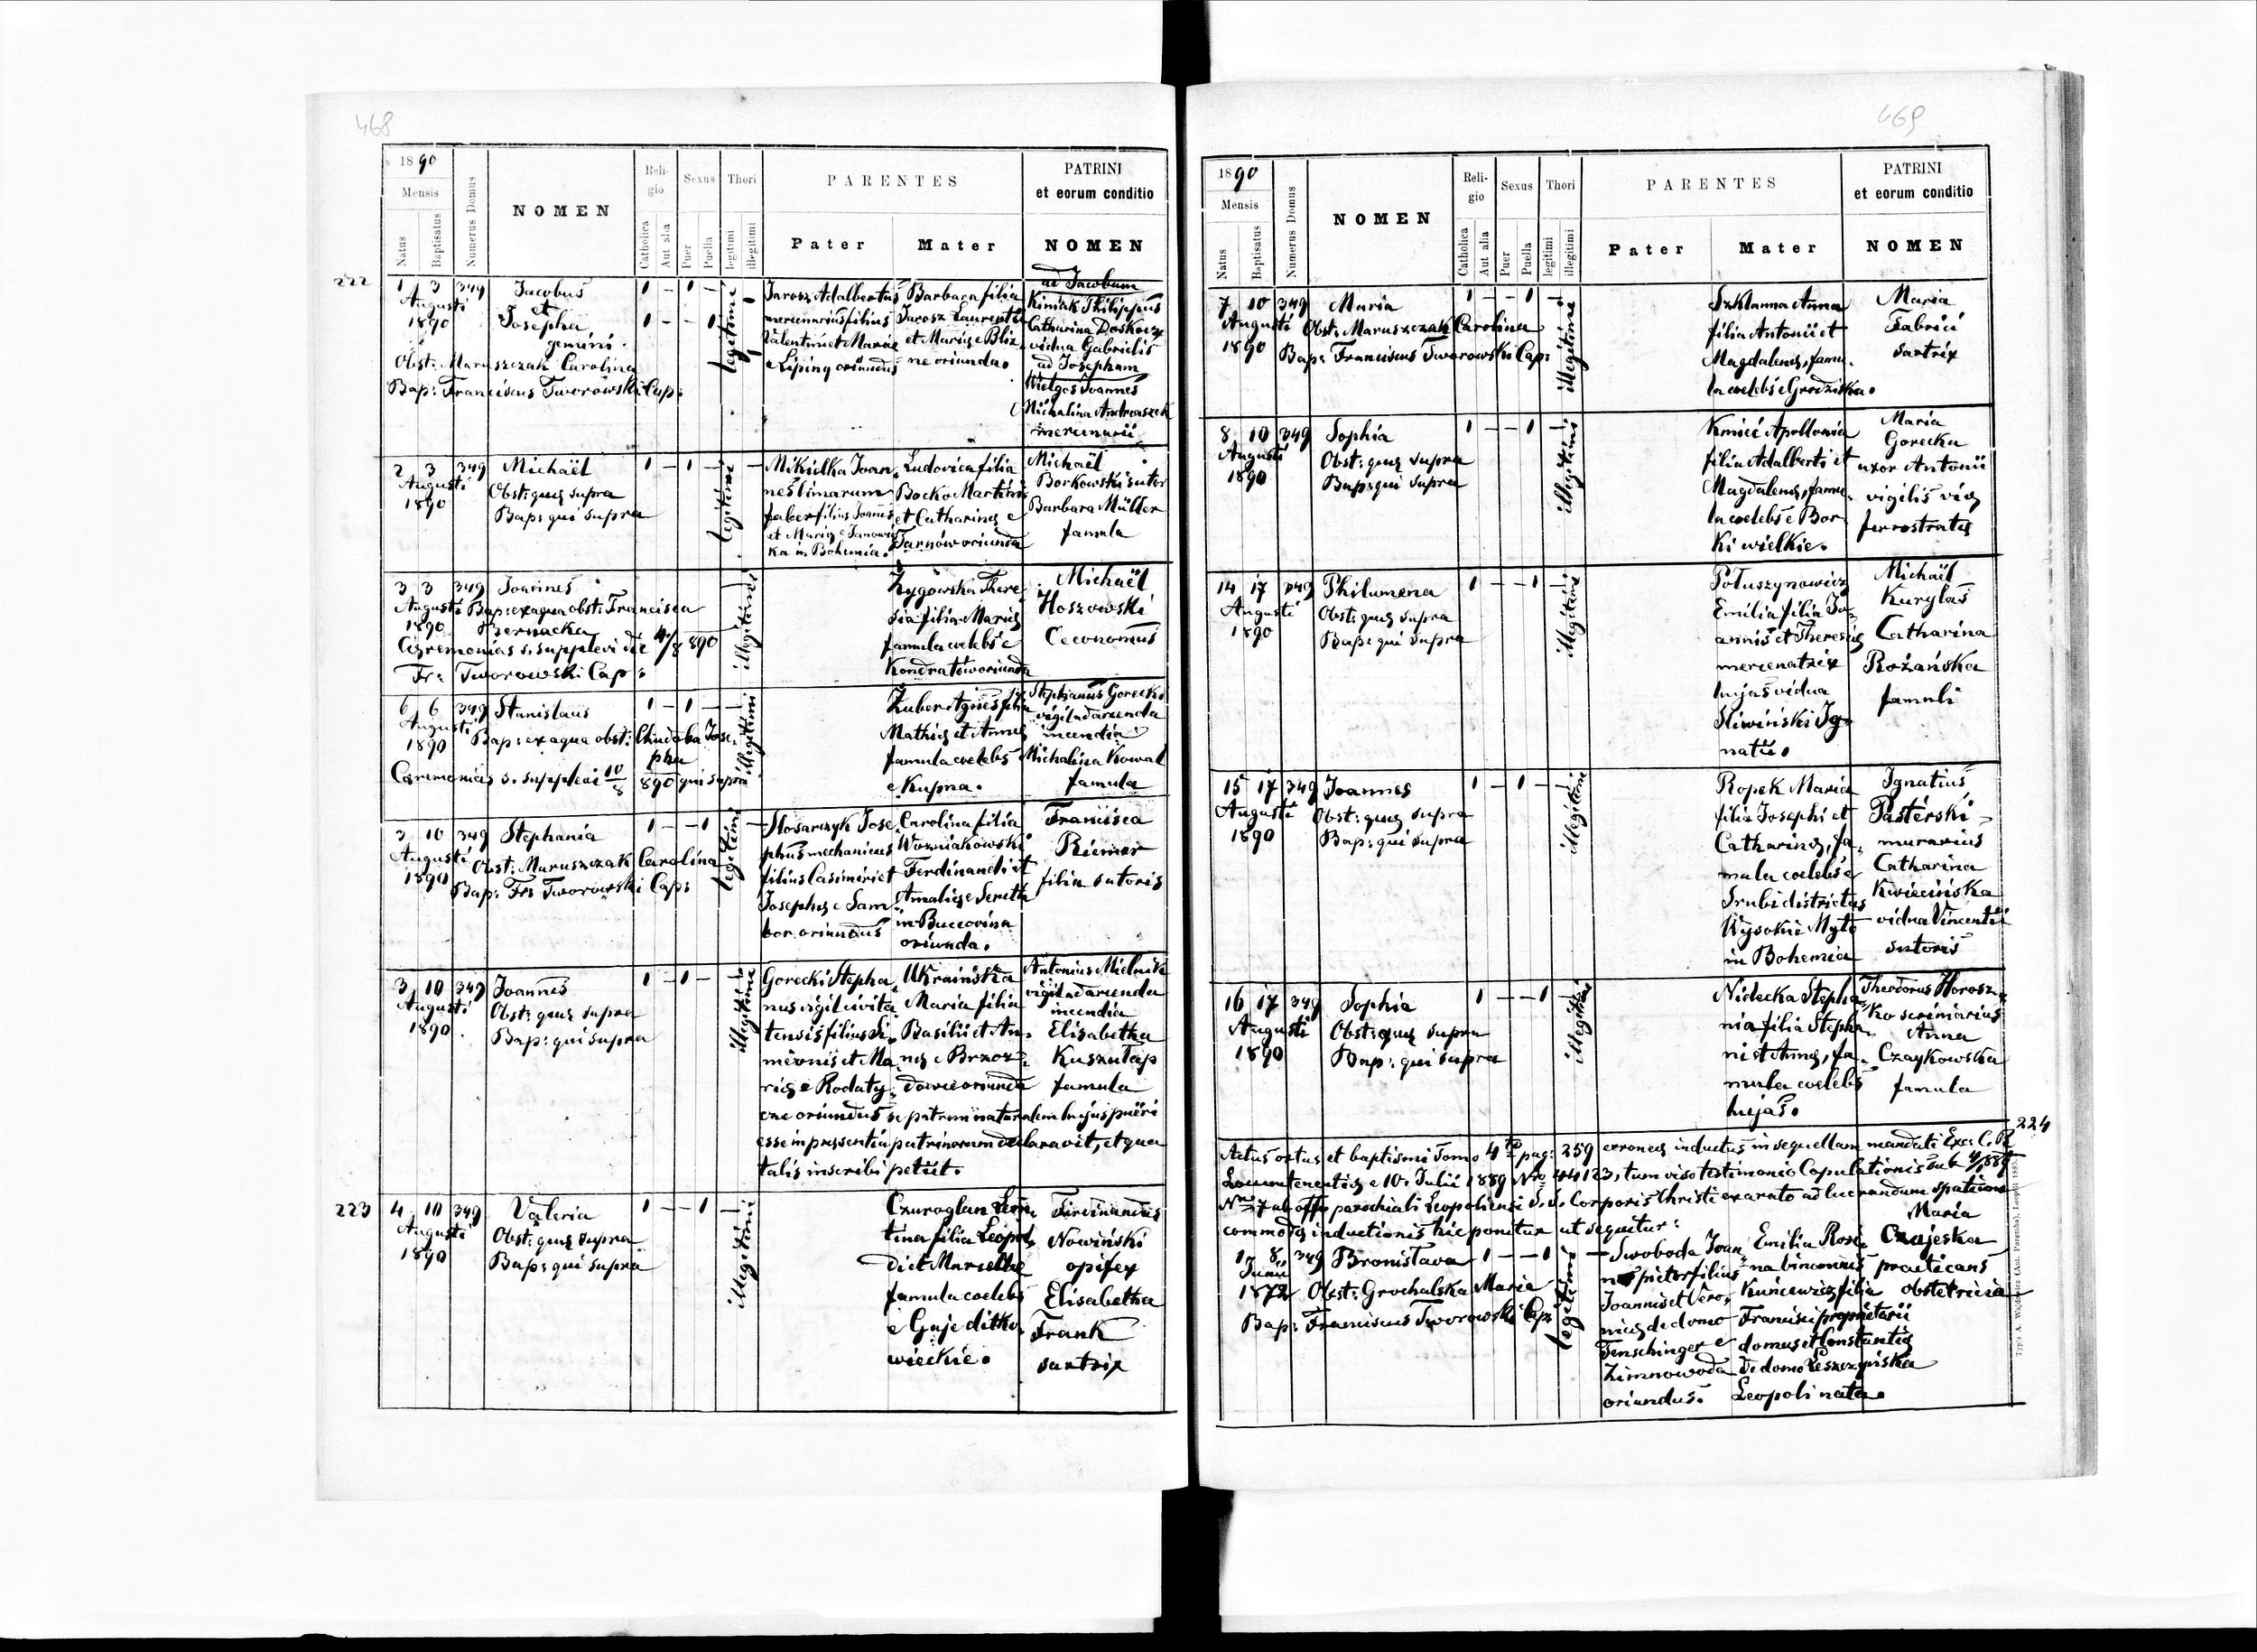 468
1890
Mensis
Natus
Baptisatus
Numerus Domus
NOMEN
Religio
Catholica
Aut alia
Sexus
Puer
Puella
Thori
legitimi
illegitimi
PARENTES
Pater
Mater
PATRINI
et eorum conditio
NOMEN
222
1 3 349
Augusti
1890
Jacobus
et
Josepha
gemini.
Obst: Maruszczak Carolina
Bap: Franciscus Tworowski Cap:
1 – 1 –
1 – – 1
legitimi
Jarosz Adalbertus
mercenarius filius
Valentini et Mariæ
e Liping oriundus
Barbara filia
Jarosz Laurentii
et Mariæ e Bliz
ne oriunda.
ad Jacobum
Kimiak Philippus
Catharina Doskocz
vidua Gabrielis
ad Josepham
Wielgos Joannes
Michalina Andreaszek
mercenarii
2 3 349
Augusti
1890
Michaël
Obst: quæ supra
Bap: qui supra
1 – 1 –
legitimi
Mikulka Joan-
nes limarum
faber filius Joannis
et Mariæ e Janowic
ka in Bohemia.
Ludovica filia
Bocko Martini
et Catharinæ e
Tarnów oriunda
Michaël
Borkowski sutor
Barbara Müller
famula
3 3 349
Augusti
1890
Joannes
Bap: ex aqua obst: Francisca
Bernacka
Cæremonias s. supplevi die 4/8 890
Fr: Tworowski Cap:
illegitimi
Zygowska There
sia filia Mariæ
famula cœlebs e
Kondratów oriunda
Michaël
Hoszowski
Oeconomus
6 6 349
Augusti
1890
Stanislaus
Bap: ex aqua obst: Chudoba Jose-
pha
Cæremonias s. supplevi 10/8 890 qui supra
1 – 1 –
illegitimi
Zuber Agnes filia
Mathiæ et Annæ
famula cœlebs
e Kupna.
Stephanus Gorecki
vigil ad arcenda
incendia
Michalina Kowal
famula
3 10 349
Augusti
1890
Stephania
Obst: Maruszczak Carolina
Bap: Fr: Tworowski Cap:
1 – – 1
legitimi
Slosarczyk Jose-
phus mechanicus
filius Casimiri et
Josephæ e Sam
bor oriundus
Carolina filia
Wozniakowski
Ferdinandi et
Amaliæ e Sereth
in Buccovina
oriunda.
Francisca
Riemer
filia sutoris
3 10 349
Augusti
1890
Joannes
Obst: quæ supra
Bap: qui supra
1 – 1 –
illegitimi
Gorecki Stepha-
nus vigil civita
tensis filius Si-
meonis et Ma-
riæ e Rodaty-
cze oriundus se patrem naturalem hujus pueri
esse in præsentia patrinorum declaravit, et qua
talis inscribi petiit.
Ukrainska
Maria filia
Basilii et An-
næ e Brzoz-
dowce oriunda
Antonius Mielnik
vigil ad arcenda
incendia
Elisabetha
Kuszutap
famula
223
4 10 349
Augusti
1890
Valeria
Obst: quæ supra
Bap: qui supra
1 – – 1
illegitimi
Czuroglan Leon-
tina filia Leopol-
di et Marcellæ
famula cœlebs
e Gaje ditko-
wieckie.
Ferdinandus
Nowiński
opifex
Elisabetha
Frank
sartrix
469
1890
Mensis
Natus
Baptisatus
Numerus Domus
NOMEN
Religio
Catholica
Aut alia
Sexus
Puer
Puella
Thori
legitimi
illegitimi
PARENTES
Pater
Mater
PATRINI
et eorum conditio
NOMEN
7 10 349
Augusti
1890
Maria
Obst: Maruszczak Carolina
Bap: Franciscus Tworowski Cap:
1 – – 1
illegitimi
Szklanna Anna
filia Antonii et
Magdalenæ, famu-
la cœlebs e Grodziska.
Maria
Fabrici
sartrix
8 10 349
Augusti
1890
Sophia
Obst: quæ supra
Bap: qui supra
1 – – 1
illegitimi
Kmieć Apollonia
filia Adalberti et
Magdalenæ, famu-
la cœlebs e Bor-
ki wielkie.
Maria
Gorecka
uxor Antonii
vigilis viæ
ferrostratæ
14 17 349
Augusti
1890
Philumena
Obst: quæ supra
Bap: qui supra
1 – – 1
illegitimi
Potuszynowicz
Emilia filia Jo-
annis et Theresiæ
mercenatrix
hujas vidua
Sliwiński Ig-
natii.
Michaël
Kurylas
Catharina
Rożańska
famuli
15 17 349
Augusti
1890
Joannes
Obst: quæ supra
Bap: qui supra
1 – 1 –
illegitimi
Ropek Maria
filia Josephi et
Catharinæ, fa-
mula cœlebs e
Srubi districtus
Wysokie Myto
in Bohemia
Ignatius
Pasterski
murarius
Catharina
Kwiecińska
vidua Vincentii
sutoris
16 17 349
Augusti
1890
Sophia
Obst: quæ supra
Bap: qui supra
1 – – 1
illegitimi
Nidecka Stepha-
nia filia Stepha-
ni et Annæ, fa-
mula cœlebs
hujas.
Theodorus Horosz-
ko scriniarius
Anna
Czaykowska
famula
224
Actus ortus et baptismi Tomo 4to pag: 259 erronea inductus in sequellam mandati Exc: C. R.
Locumtenentiæ e 10. Julii 1889 Nro 44123, tum viso testimonio Copulationis sub 4/889
Nro 7 ab offo parochiali Leopoliensi S.S. Corporis Christi exarato ad lucrandum spatium
commodæ inductionis hic ponitur ut sequitur:
1 8 349
Junii
1872
Bronislava
Obst: Grochalska Maria
Bap: Franciscus Tworowski Cap:
1 – – 1
legitimi
Swoboda Joan-
nes pictor filius
Joannis et Vero-
nicæ de domo
Fenschinger e
Zimnowoda
oriundus.
Emilia Rosi-
na binominis
Kuniewicz filia
Francisci proprietarii
domus et Constantiæ
de domo Leszczyńska
Leopoli nata.
Maria
Czajeska
practicans
obstetricia